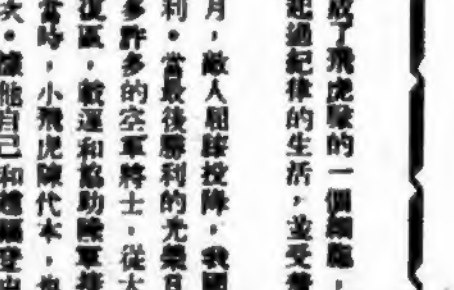 了飛虎隊的一個細胞，
起過紀律的生活，並受
月，敵人屈膝投降，我國
利。當最後勝利的光榮
多許多的空軍將士，從大
復區，載運和協助陸軍接
當時，小飛虎陳代本，也
他自己和